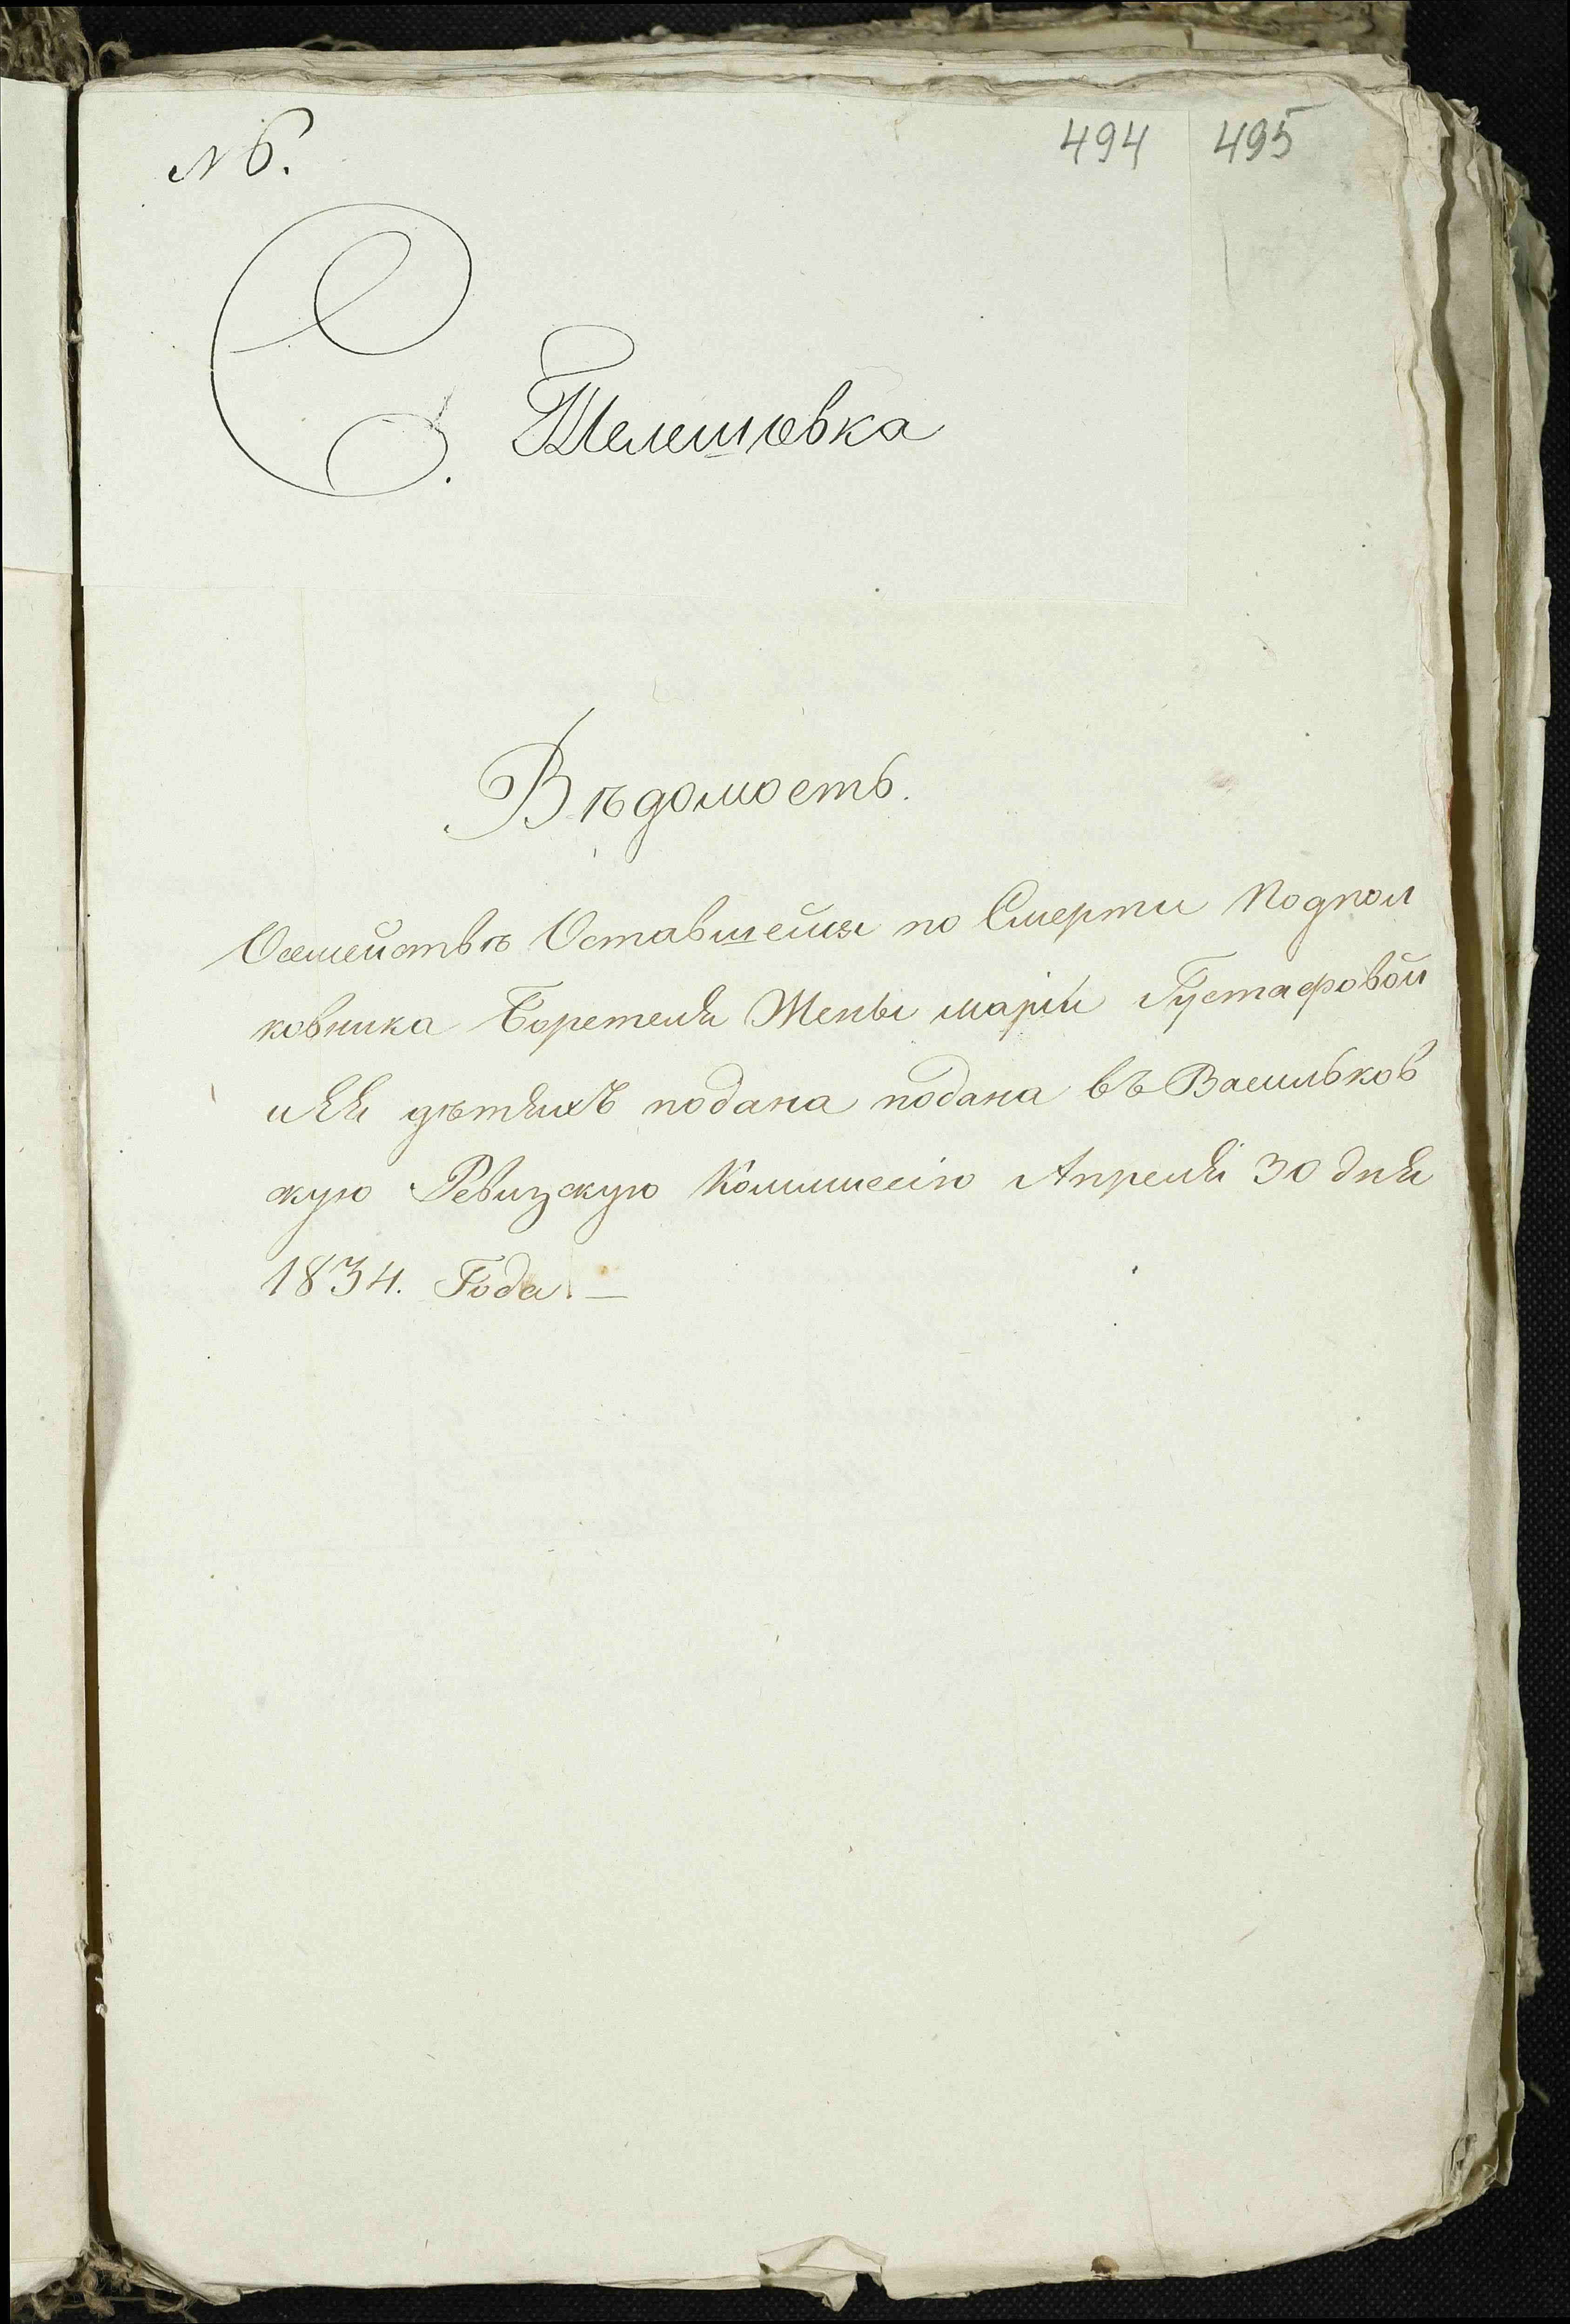 № 6.
494 495
С. Телешовка
Вѣдомость.
Осемействѣ Оставшейся по Смерти Подпол
ковника Боретеля Жены марiи Густафовой
иЯЯ дѣтяхЪ подана подана въ Васильков
скую Ревизскую Коммиссiю Апреля 30 дня
1834. Года. —